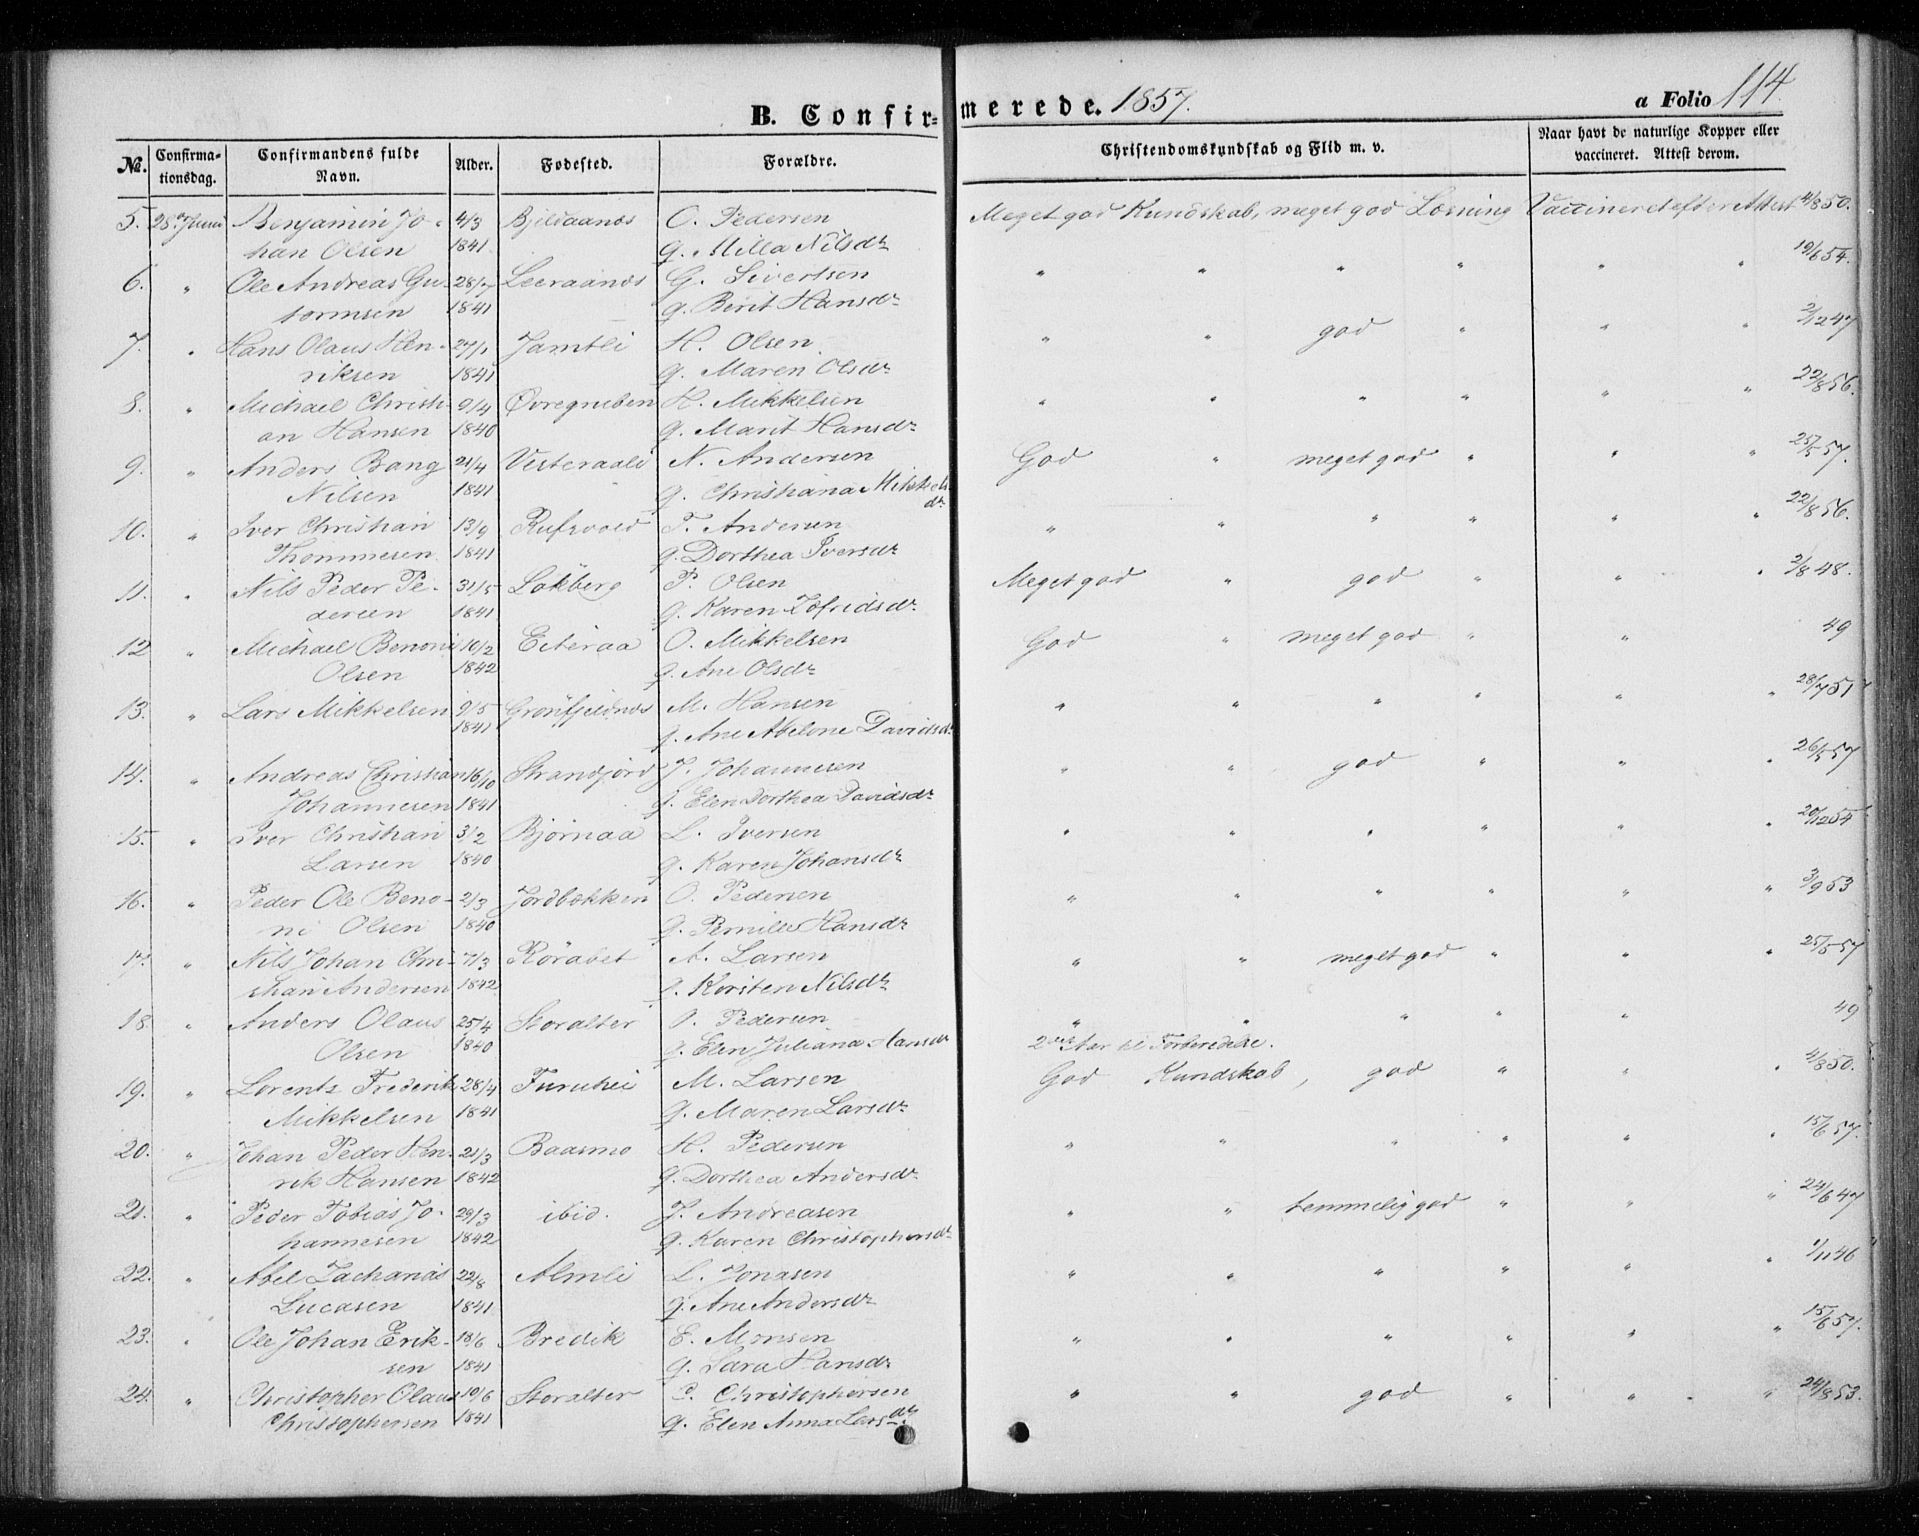 B. Confirmerede. 1857. a Folio 114.
No. Confirmationsdag. Confirmandens fulde Navn. Alder. Fodested. Forældre. Christendomskundskab og Flid m. v. Naar havt de naturlige Kopper eller vaccineret. Attest derom.
5. 28de Juni Benjamin Jo- 4/3 Bjeldaanæs O. Pedersen Meget god Kundskab, meget god Læsning Vaccineret efter Attest 4/8 50.
han Olsen 1841 q. Milla Nilsdr
6. " Ole Andreas Gu- 28/7 Leeraanæs G. Sivertsen " " " " " " 19/6 54.
tormsen 1841 q. Berit Hansdr
7. " Hans Olaus Hen- 27/1 Jamtli H. Olsen " " god " " " 2/12 47
riksen 1841 q. Maren Olsdr
8. " Michael Christi- 9/4 Øvregruben H. Mikkelsen " " " " " " 22/8 56.
an Hansen 1840 q. Marit Hansdr
9. " Anders Bang 21/4 Vesteraali N. Andersen God " meget god " " " 25/5 57.
Nilsen 1841 q. Christiana Mikkels
dr
10. " Iver Christian 13/9 T. Andersen " " " " " " 22/8 56.
Thommesen 1841 q. Dorthea Iversdr
11. " Nils Peder Pe- 31/5 Løkberg P. Olsen Meget god " god " " " 2/8 48.
dersen 1841 q. Karen Zofridsdr
12 " Michael Benoni 10/2 Eiteraa O. Mikkelsen God " meget god " " 49
Olsen 1842 q. Ane Olsdr
13. " Lars Mikkelsen 9/5 Grønfjeldnæs M. Hansen " " " " " " 28/7 51
1841 q. Ane Abelone Davidsdr
14. " Andreas Christian 16/10 Strandjord J. Johannesen " " god " " " 26/5 57
Johannesen 1841 q. Elen Dorthea Davidsdr
15. " Iver Christian 3/2 Bjørnaa L. Iversen " " " " " " 20/12 54
Larsen 1840 q. Karen Johansdr
16. " Peder Ole Beno- 2/3 Jordbækken O. Pedersen " " " " " " 3/9 53
ni Olsen 1840 q. Pernille Hansdr
17. " Nils Johan Chri- 7/3 Rørabet A. Larsen " " meget god " " " 25/5 57
stian Andersen 1842 q. Korsten Nilsdr
18. " Anders Olaus 25/4 Storalter O. Pedersen " " " " " 49
Olsen 1840 q. Elen Juliana Hansdr 2det Aar til Forberedelse.
19. " Lorents Frederik 28/4 Furuhei M. Larsen God Kundskab, god " " " 4/8 50.
Mikkelsen 1841 q. Maren Larsdr
20. " Johan Peder Hen- 21/3 Baasmo H. Pedersen " " " " " " 15/6 57.
rik Hansen 1842 q. Dorthea Andersdr
21. " Peder Tobias Jo- 29/3 ibid. J. Andreasen " " temmelig god " " " 24/6 47
hannesen 1842 q. Karen Christophersdr
22. " Abel Zacharias 22/8 Almli L. Jonasen " " " " " " 1/11 46
Lucasen 1841 q. Ane Andersdr
23. " Ole Johan Erik- 18/6 Bredik E. Monsen " " " " " " 15/6 57.
sen 1841 q. Sara Hansdr
24. " Christopher Olaus 10/6 Storalter C. Christophersen " " god " " " 24/8 53.
Christophersen 1841 q. Elen Anna Larsdr